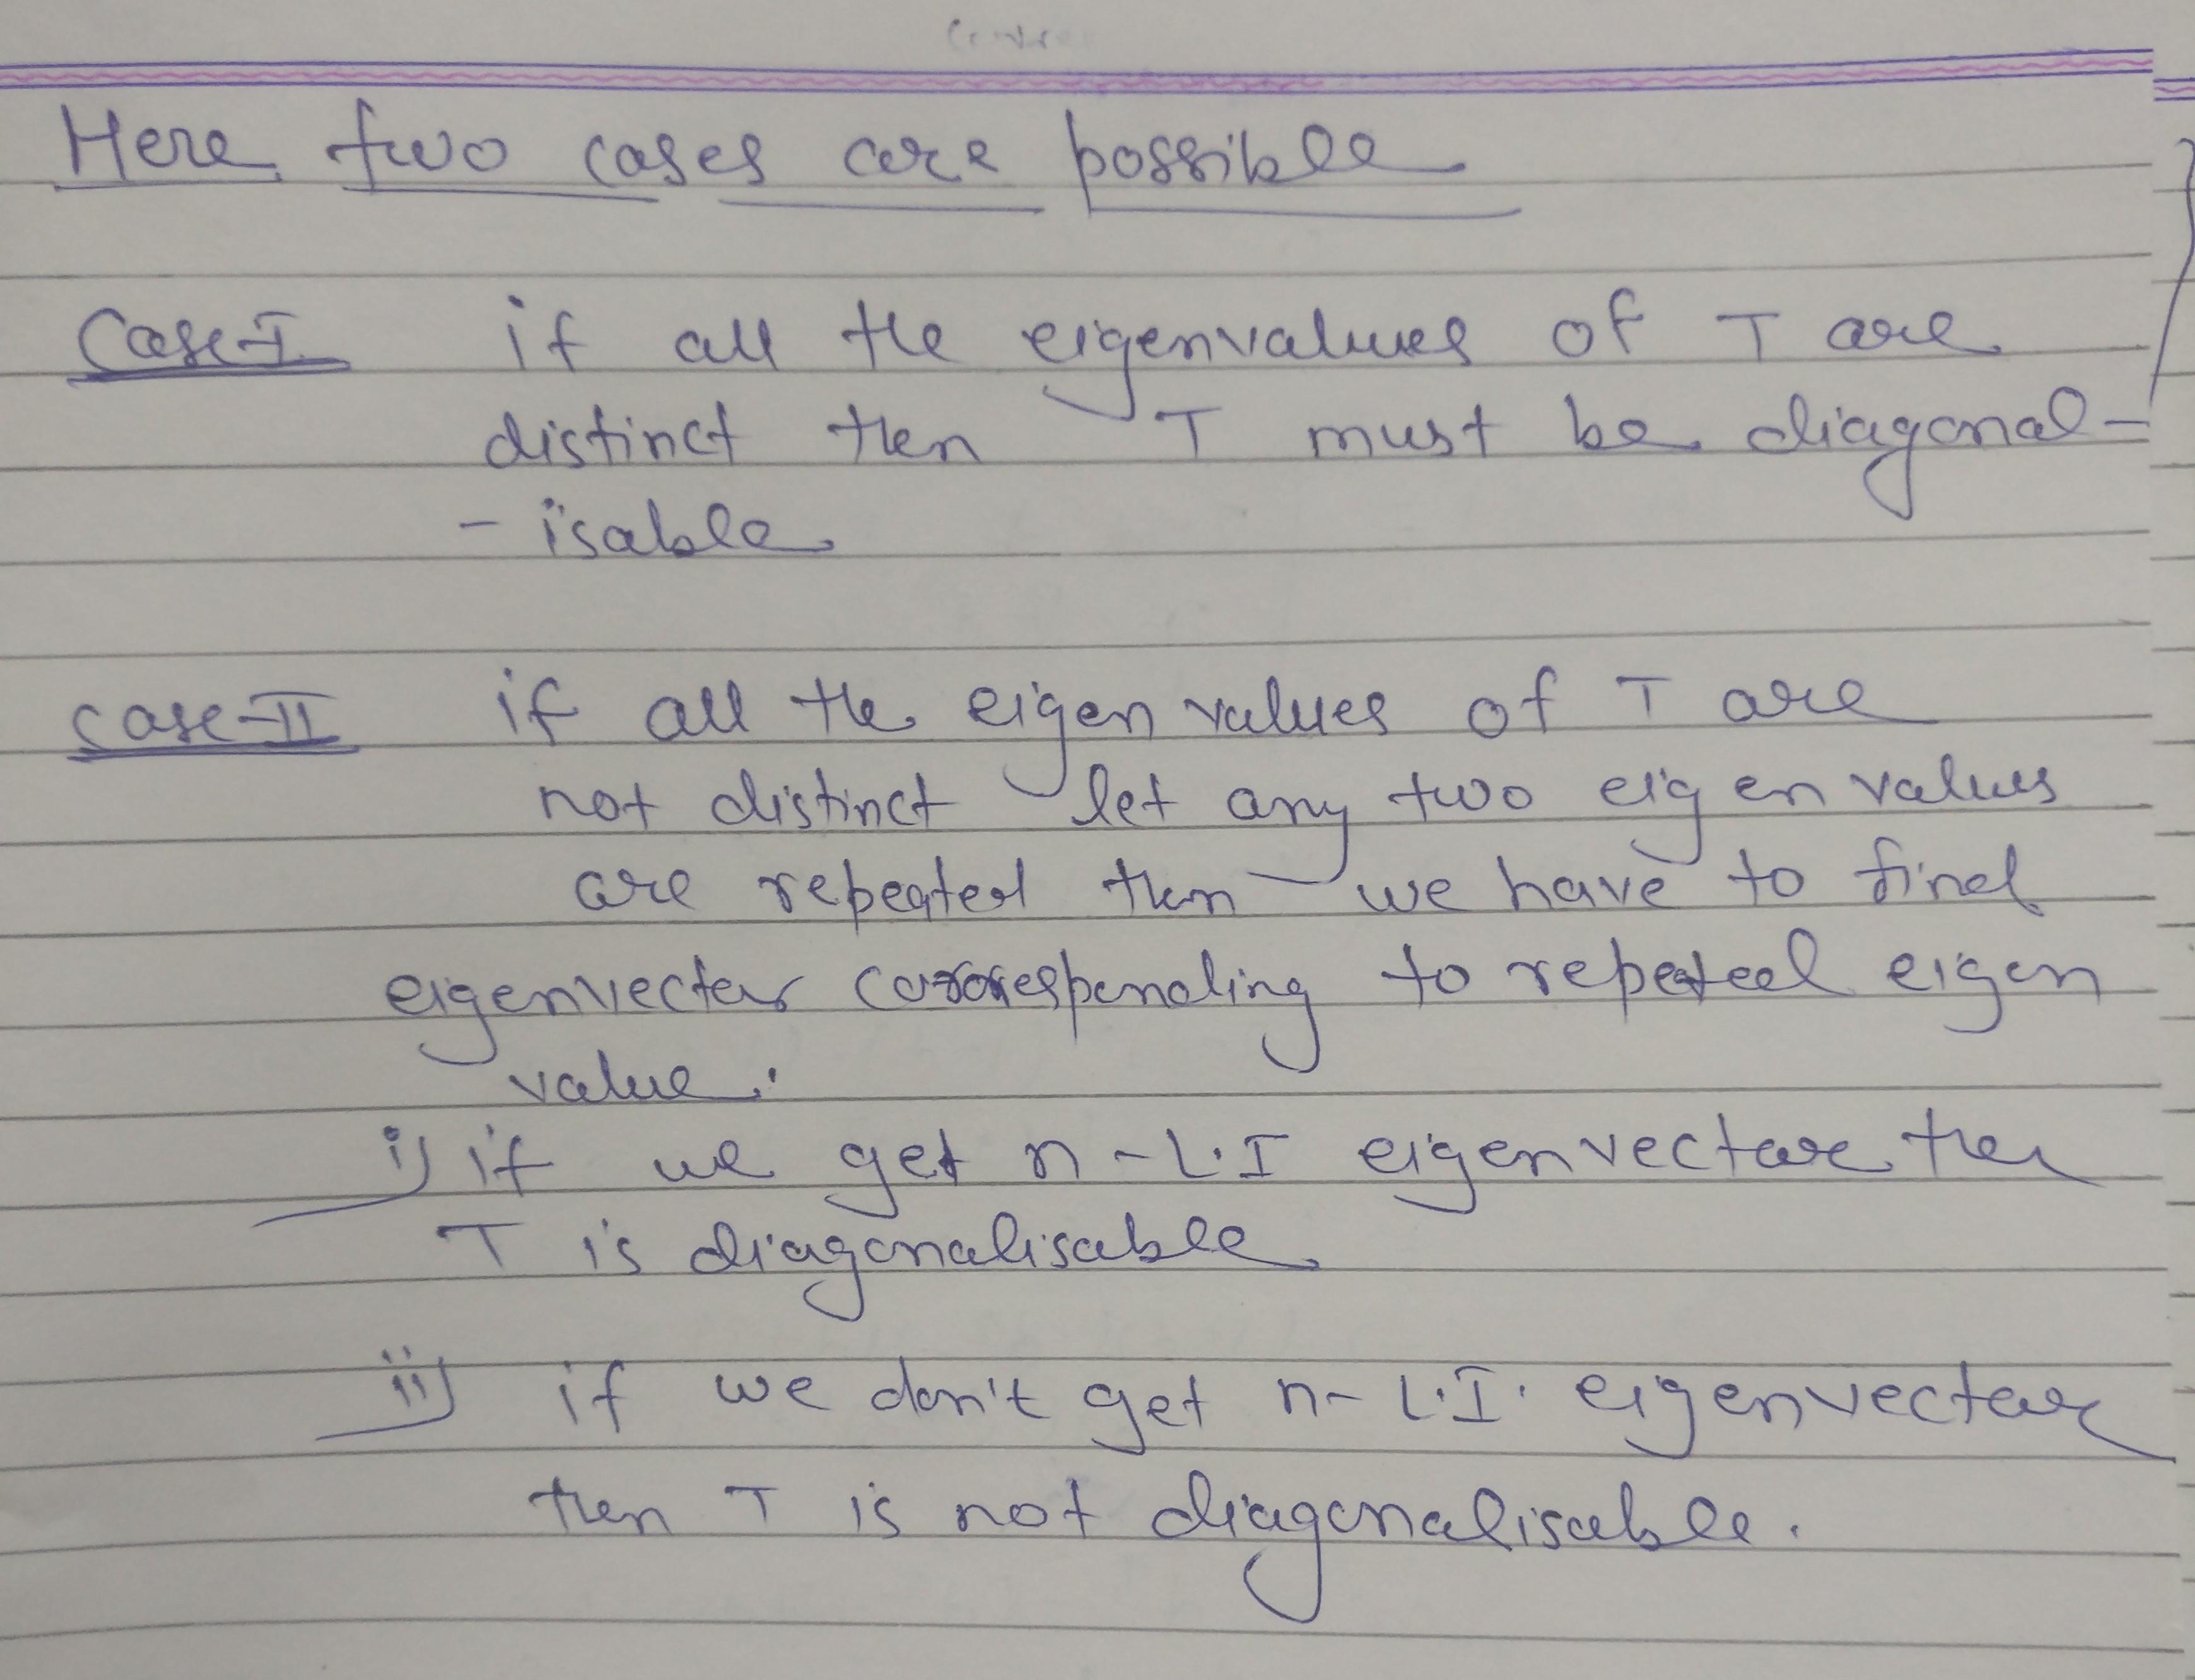 Here two cases are possible
Case-I if all the eigenvalues of T are
distinct then T must be diagonal-
- isable
case-II if all the eigen values of T are
not distinct let any two eigen values
are repeated then we have to find
eigenvector corresponding to repeated eigen
value.
i) if we get n-L.I eigenvector then
T is diagonalisable
ii) if we don't get n-L.I. eigenvector
then T is not diagonalisable.